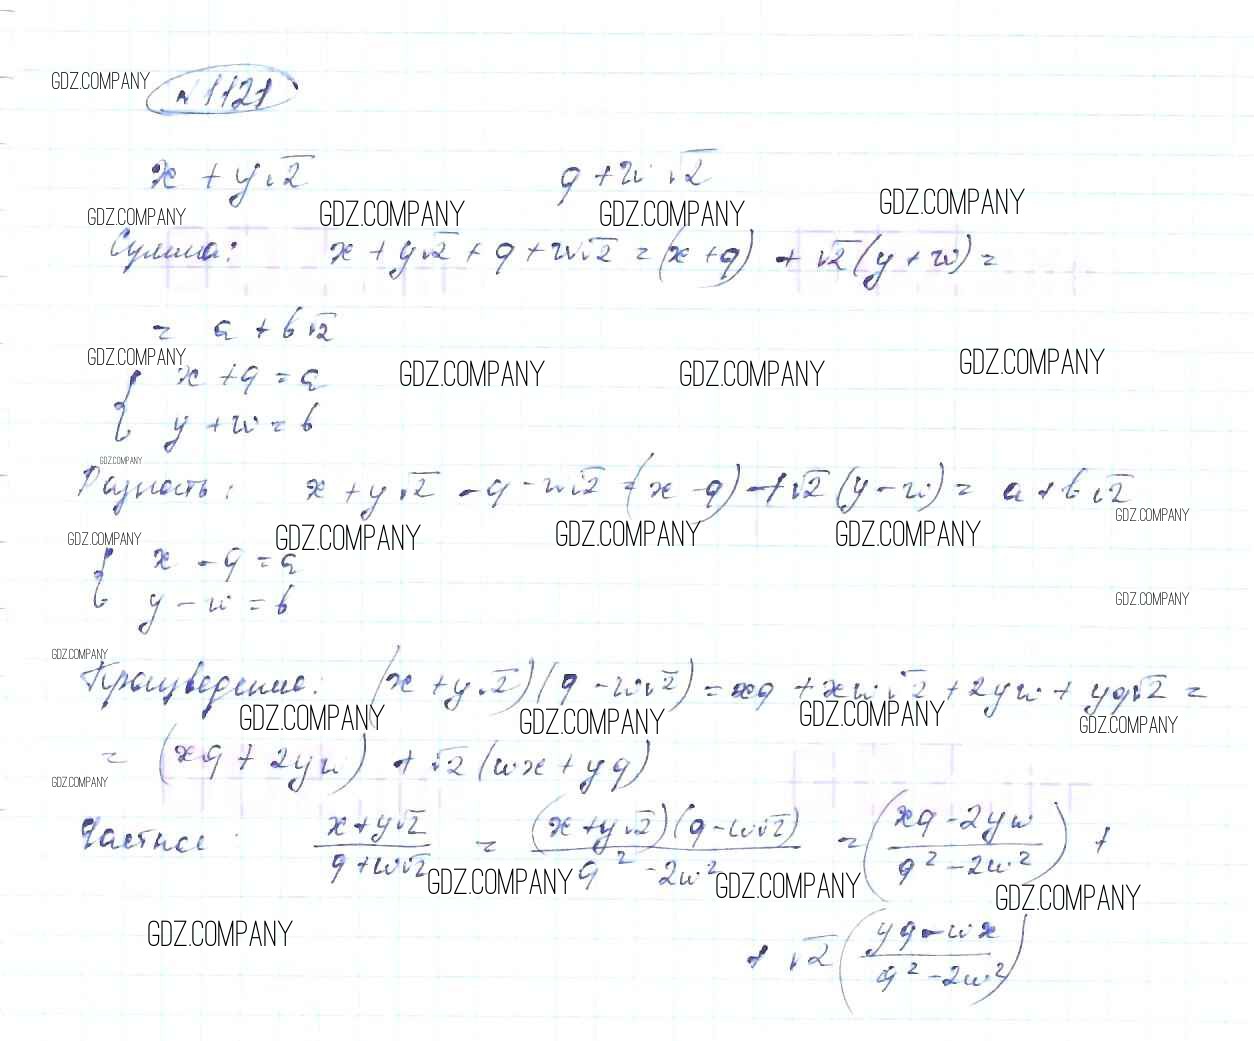 GDZ.COMPANY
№1121
x + y√2 q + w√2
GDZ.COMPANY GDZ.COMPANY GDZ.COMPANY GDZ.COMPANY
Сумма: x + y√2 + q + w√2 = (x + q) + √2(y + w) =
= a + b√2
GDZ.COMPANY GDZ.COMPANY GDZ.COMPANY GDZ.COMPANY
{ x + q = a
y + w = b
GDZ.COMPANY
Разность: x + y√2 - q - w√2 = (x - q) + √2(y - w) = a + b√2
GDZ.COMPANY
GDZ.COMPANY GDZ.COMPANY GDZ.COMPANY GDZ.COMPANY
{ x - q = a
y - w = b
GDZ.COMPANY
GDZ.COMPANY
Произведение: (x + y√2)(q - w√2) = xq + xw√2 + 2yw + yq√2 =
GDZ.COMPANY GDZ.COMPANY GDZ.COMPANY GDZ.COMPANY
= (xq + 2yw) + √2(wx + yq)
GDZ.COMPANY
Частное: (x + y√2)/(q + w√2) = ((x + y√2)(q - w√2))/(q² - 2w²) = ((xq - 2yw)/(q² - 2w²)) +
GDZ.COMPANY GDZ.COMPANY GDZ.COMPANY
GDZ.COMPANY
+ √2((yq - wx)/(q² - 2w²))